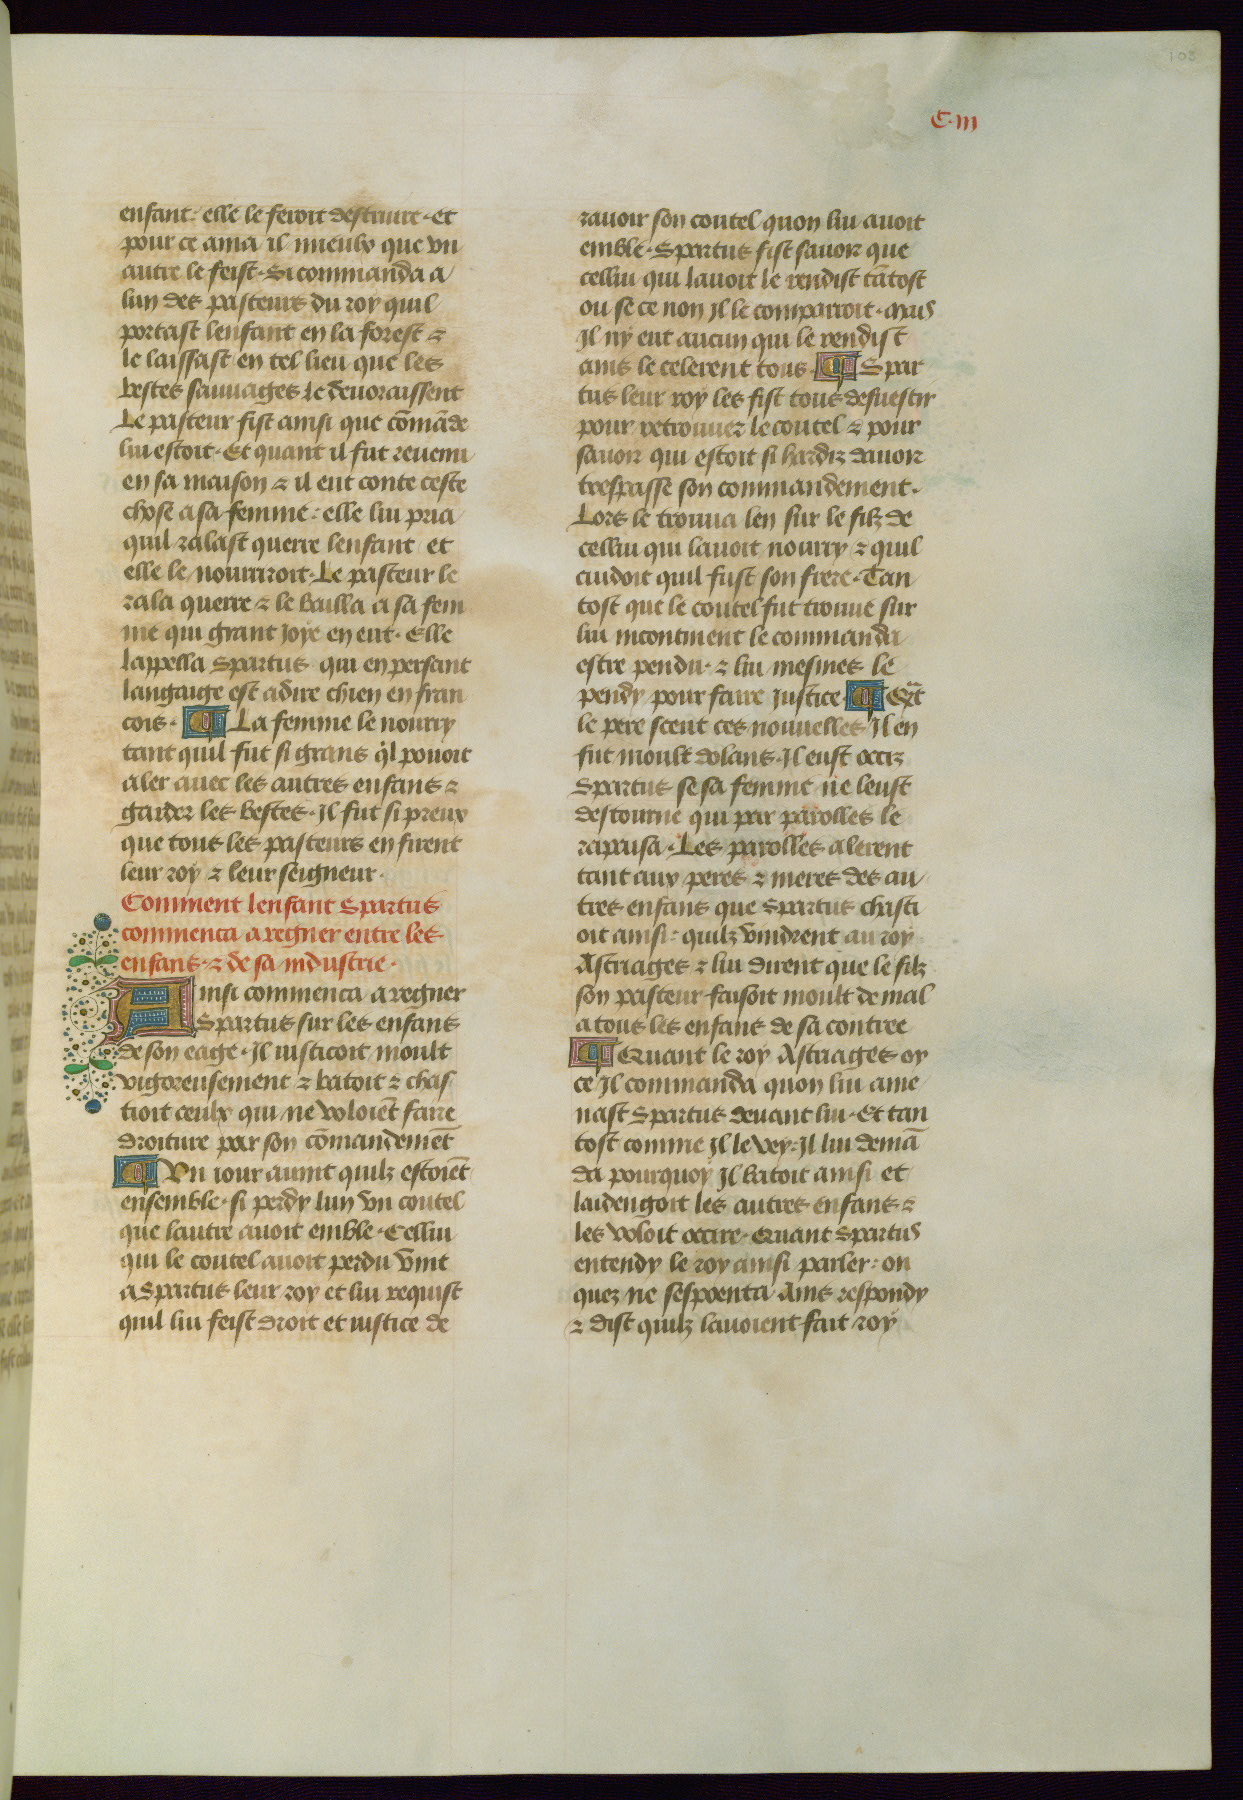 103
C·iii
enfant· elle le feroit destruire· et
pour ce ama il mieulx que vn
autre le feist· Si commanda a
lun des pasteurs du roy quil
portast lenfant en la forest ⁊
le laissast en tel lieu que les
bestes sauuages le deuoraissent
Le pasteur fist ainsi que cōmāde
lui estoit· Et quant il fut reuenu
en sa maison ⁊ il eut conte ceste
chose a sa femme· elle lui pria
quil ralast querre lenfant et
elle le nourriroit· Le pasteur le
rala querre ⁊ le bailla a sa fem
me qui grant joye en eut· Elle
lappella Spartus qui en persant
langaige est adire chien en fran
cois· ¶ La femme le nourry
tant quil fut si grans q̇l pouoit
aler auec les autres enfans ⁊
garder les bestes· Il fut si preux
que tous les pasteurs en firent
leur roy ⁊ leur seigneur·
Comment lenfant Spartus
commenca a regner entre les
enfans· ⁊ de sa industrie·
Ainsi commenca a regner
Spartus sur les enfans
de son eage· Il iusticoit moult
vigoreusement ⁊ batoit ⁊ chas
tioit ceulx qui ne voloiēt faire
droiture par son cōmandemēt
¶ Vn iour auint quilz estoiēt
ensemble· si perdy lun vn coutel
que lautre auoit emble· Cellui
qui le coutel auoit perdu vint
a Spartus leur roy et lui requist
quil lui feist droit et iustice de
rauoir son coutel quon lui auoit
emble· Spartus fist sauoir que
cellui qui lauoit le rendist tātost
ou se ce non Il le comparroit· Mais
Il ny eut aucun qui le rendist
ains le celerent tous· ¶ Spar
tus leur roy les fist tous desuestir
pour retrouuer le coutel ⁊ pour
sauoir qui estoit si hardiz dauoir
trespasse son commandement·
Lors le trouua len sur le filz de
cellui qui lauoit nourry ⁊ quil
cuidoit quil fust son frere· Tan
tost que le coutel fut trouue sur
lui incontinent le commanda
estre pendu· ⁊ lui mesmes le
pendy pour faire justice· ¶ Qāt
le pere sceut ces nouuelles Il en
fut moult dolans· Il eust occiz
Spartus se sa femme ne leust
destourne qui par parolles le
rapaisa· Les parolles alerent
tant aux peres ⁊ meres des au
tres enfans que Spartus chasti
oit ainsi· quilz vindrent au roy
Astriages ⁊ lui dirent que le filz
son pasteur faisoit moult de mal
a tous les enfans de sa contree
¶ Quant le roy Astriages oy
ce Il commanda quon lui ame
nast Spartus deuant lui· Et tan
tost comme Il le vey· Il lui demā
da pourquoy Il batoit ainsi et
laidengoit les autres enfans ⁊
les voloit occire· Quant Spartus
entendy le roy ainsi parler· on
ques ne sespoenta Ains respondy
⁊ dist quilz lauoient fait roy